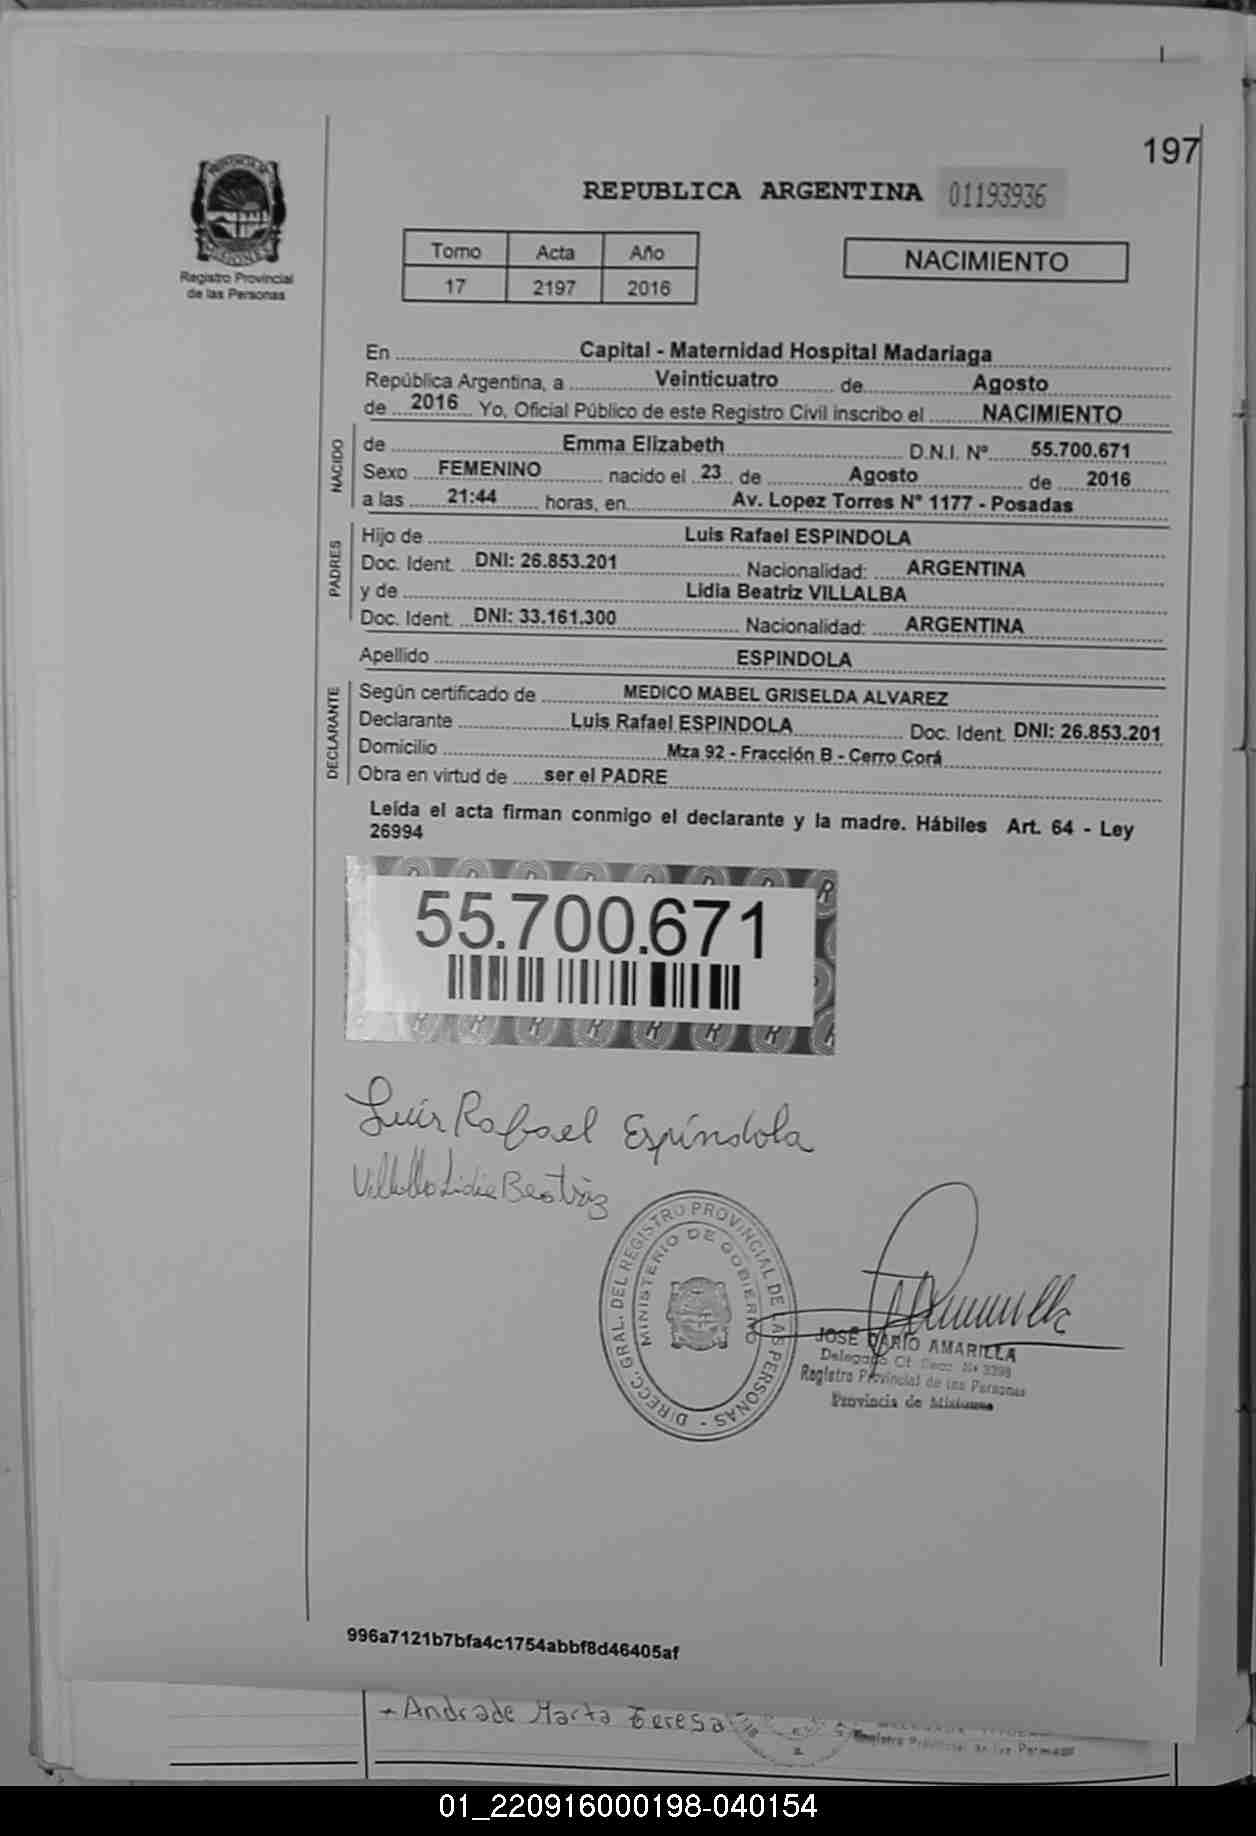 197
REPUBLICA ARGENTINA 01193936
Registro Provincial
de las Personas
Tomo Acta Año
17 2197 2016
NACIMIENTO
En Capital - Maternidad Hospital Madariaga
República Argentina, a Veinticuatro de Agosto
de 2016 Yo, Oficial Público de este Registro Civil inscribo el NACIMIENTO
NACIDO
de Emma Elizabeth D.N.I. Nº 55.700.671
Sexo FEMENINO nacido el 23 de Agosto de 2016
a las 21:44 horas, en Av. Lopez Torres N° 1177 - Posadas
PADRES
Hijo de Luis Rafael ESPINDOLA
Doc. Ident. DNI: 26.853.201 Nacionalidad: ARGENTINA
y de Lidia Beatriz VILLALBA
Doc. Ident. DNI: 33.161.300 Nacionalidad: ARGENTINA
Apellido ESPINDOLA
DECLARANTE
Según certificado de MEDICO MABEL GRISELDA ALVAREZ
Declarante Luis Rafael ESPINDOLA Doc. Ident. DNI: 26.853.201
Domicilio Mza 92 - Fracción B - Cerro Corá
Obra en virtud de ser el PADRE
Leída el acta firman conmigo el declarante y la madre. Hábiles Art. 64 - Ley
26994
55.700.671
Luis Rafael Espíndola
Villalba Lidia Beatriz
DIRECC. GRAL. DEL REGISTRO PROVINCIAL DE LAS PERSONAS -
MINISTERIO DE GOBIERNO
JOSE DARIO AMARILLA
Delegado
Registro Provincial de las Personas
Provincia de Misiones
996a7121b7bfa4c1754abbf8d46405af
Andrade Marta Teresa
Registro Provincial de las Personas
01_220916000198-040154